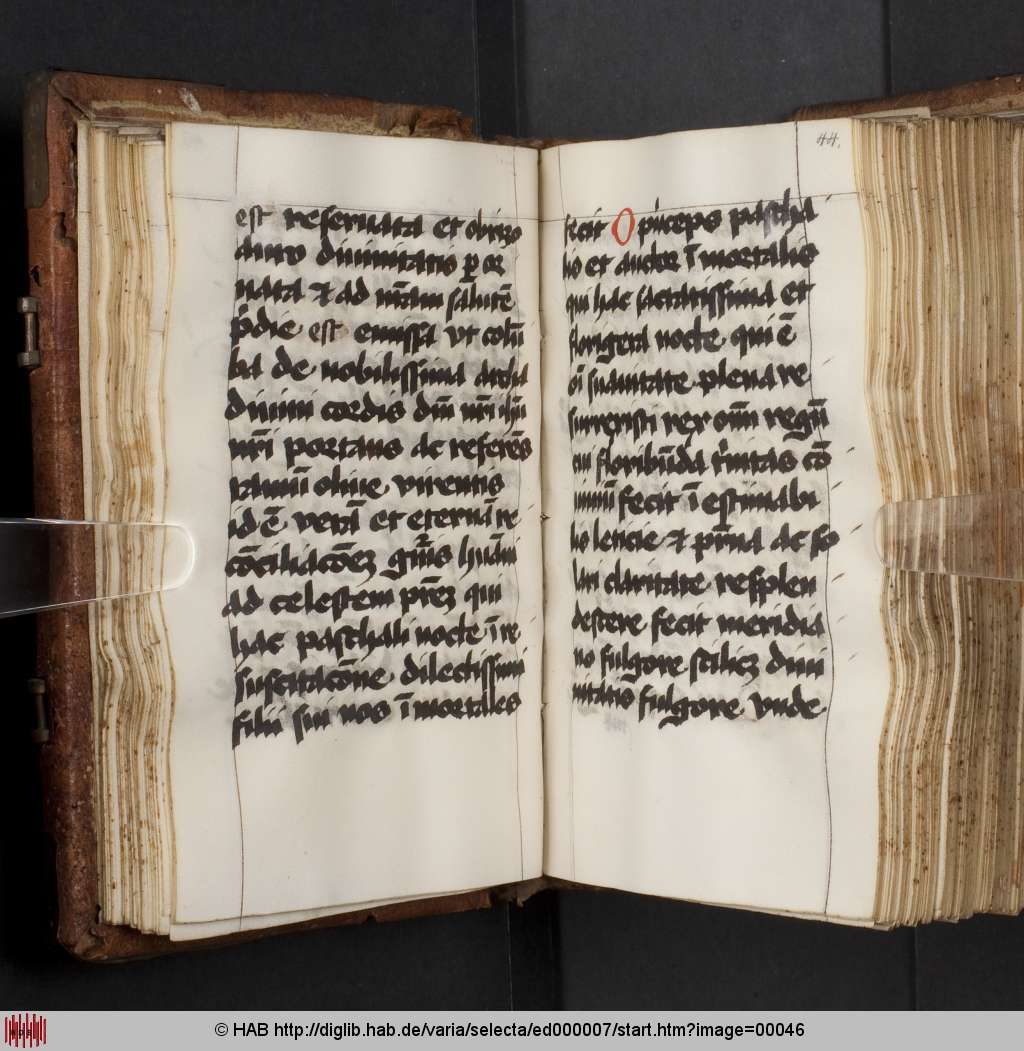 est reseruata et obrizo
auro diuinitatis ꝑ or
nata & ad nr̄am salutē
ꝓdie est emissa vt colū
ba de nobilissima archa
diuini cordis dn̄i nr̄i ihū
nr̄i portans ac referēs
ramū oliue virentis
id ē verā et eternā re
cōciliacōeꝫ gn̄is hūani
ad celestem pr̄eꝫ qui
hac paschali nocte ī re
suscitacōne dilectissimi
filii sui nos īmortales
44.
fecit O pͥnceps pascha
lis et auctor īmortalis
qui hac sacratissima et
florigera nocte qui ē
oī suauitate plena re
surrexisti rex om̄ regū
cui floribūda tͥnitas cō
iunū fecit īestimabi
lis lencie & pr̄na ac so
lari claritate resplen
descere fecit meridia
no fulgore scilicꝫ diui
nitatis fulgore vnde
© HAB http://diglib.hab.de/varia/selecta/ed000007/start.htm?image=00046